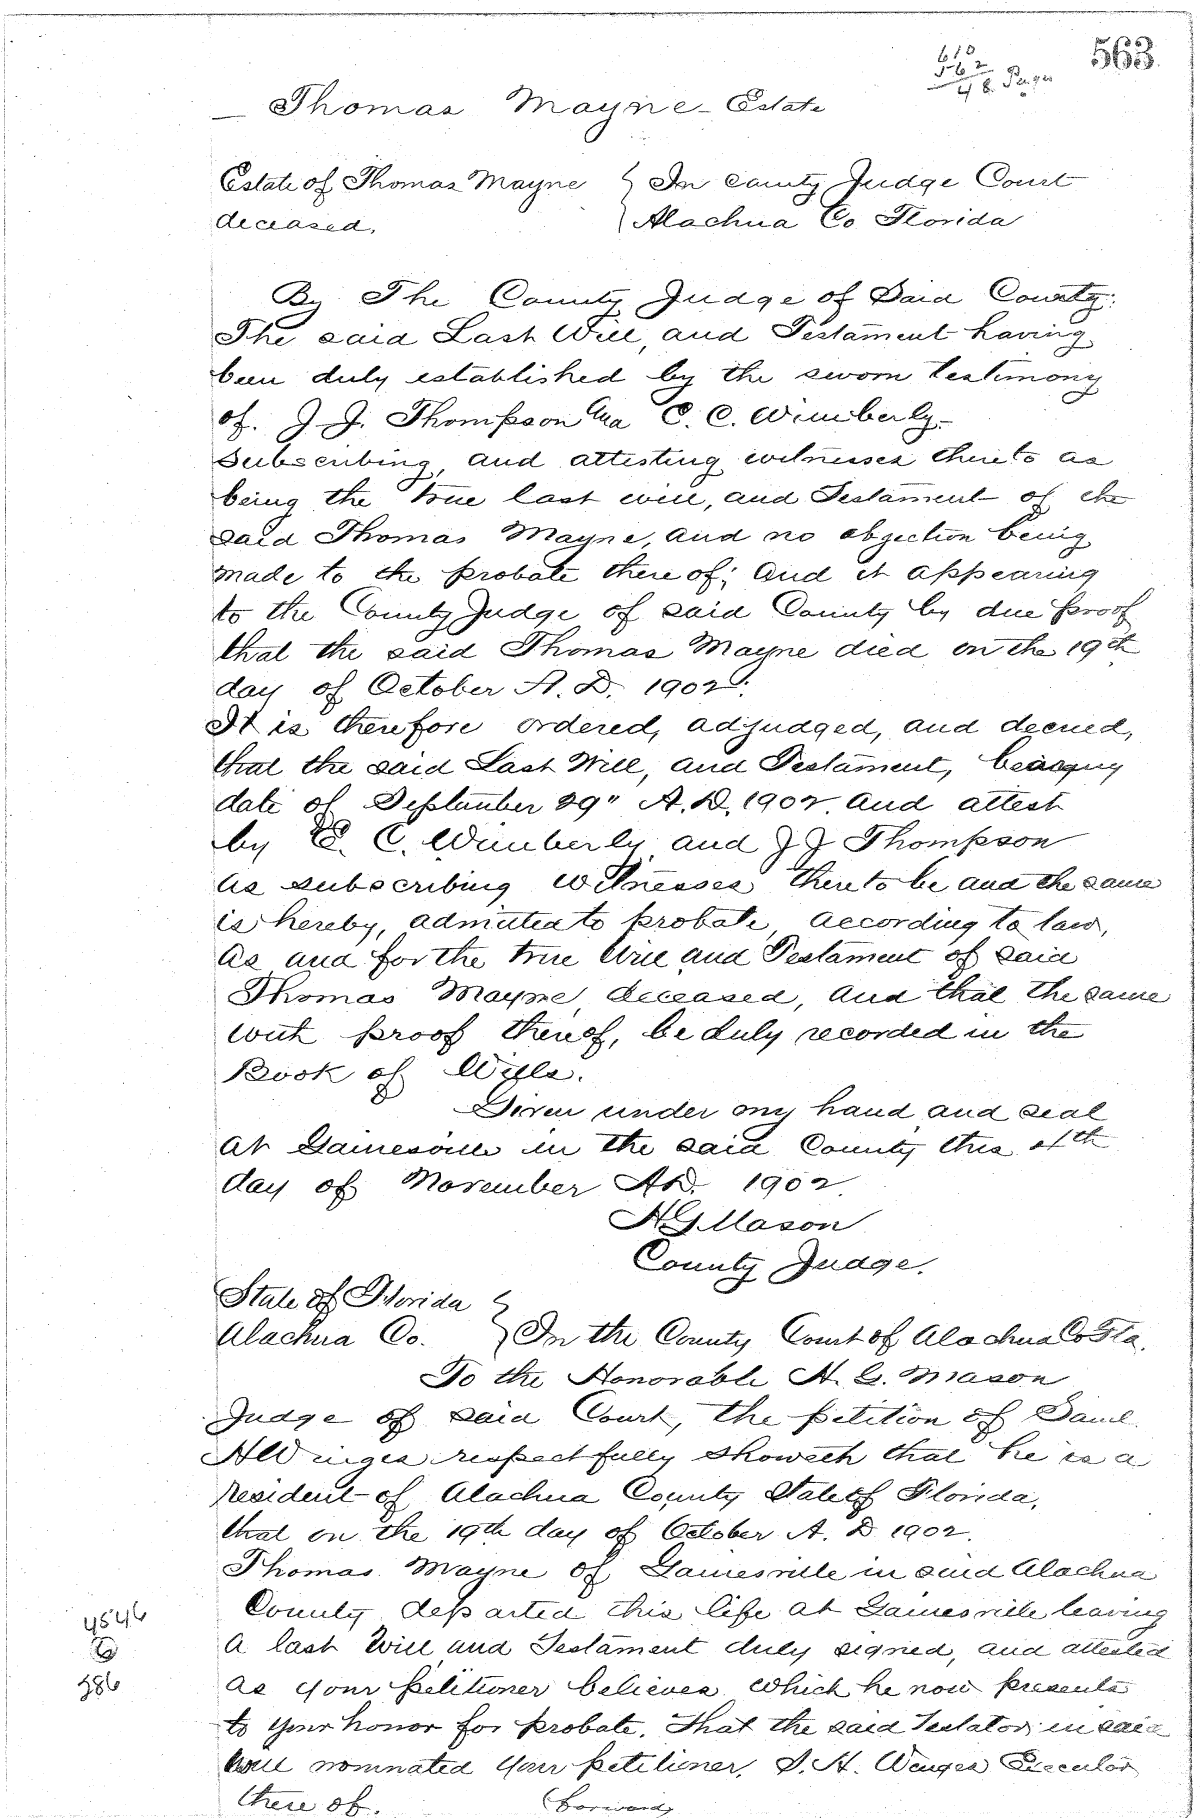 563
610
562
48 Pages
Thomas Mayne - Estate
Estate of Thomas Mayne } In County Judge Court
deceased, } Alachua Co Florida
By The County Judge of Said County:
The said Last Will, and Testament having
been duly established by the sworn testimony
of. J. J. Thompson C. C. Wimberly-
Subscribing, and attesting witnesses thereto as
being the true last will, and Testament of the
said Thomas Mayne, and no objection being
made to the probate there of; and it appearing
to the County Judge of said County by due proof
that the said Thomas Mayne died on the 19th
day of October A. D. 1902.
It is therefore ordered, adjudged, and decreed,
that the said Last Will, and Testament, bearing
date of September 29" A. D. 1902. and attest
by C. C. Wimberly and J J Thompson
as subscribing witnesses thereto be and the same
is hereby, admitted to probate, according to law,
as and for the true Will and Testament of said
Thomas Mayne, deceased, and that the same
with proof thereof, be duly recorded in the
Book of Wills.
Given under my hand and seal
at Gainesville in the said County this
day of November A.D. 1902.
H. G. Mason
County Judge.
State of Florida }
Alachua Co. } In the County Court of Alachua Co Fla.
To the Honorable H. G. Mason
Judge of said Court, the petition of Saml.
H Winges respectfully showeth that he is a
resident of Alachua County State of Florida,
that on the 19th day of October A. D 1902.
Thomas Mayne of Gainesville in said Alachua
County departed this life at Gainesville leaving
a last Will and Testament duly signed, and attested
as your petitioner believes which he now presents
to your honor for probate. That the said Testator in said
will nominated your petitioner, S. H. Winges Executor
there of. (forward)
4546
386